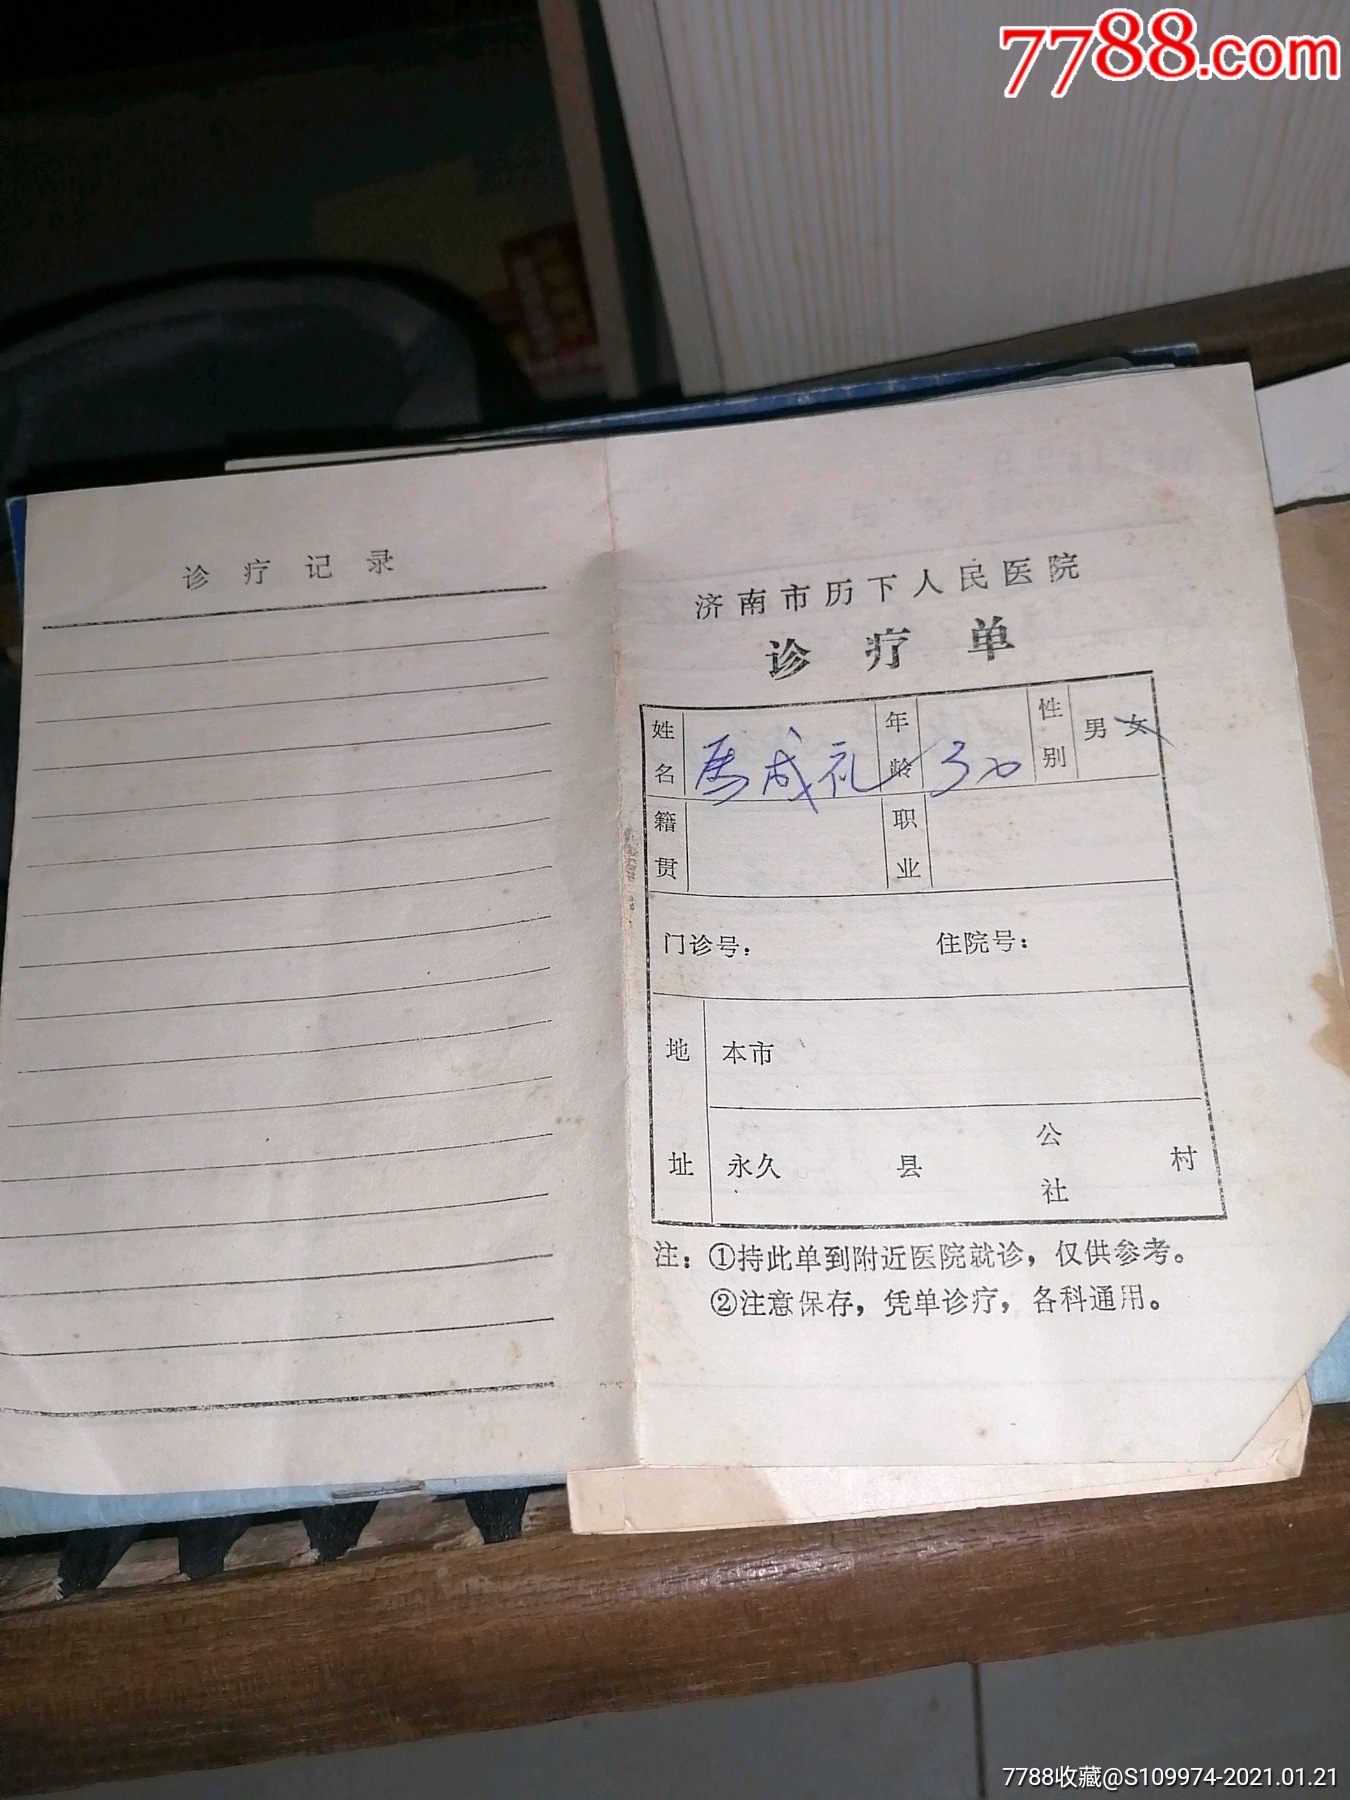 7788.com
诊疗记录
济南市历下人民医院
诊疗单
姓名 成礼 年龄 30 性别 男女
籍贯 职业
门诊号： 住院号：
地址 本市
永久 县 公社 村
注：①持此单到附近医院就诊，仅供参考。
②注意保存，凭单诊疗，各科通用。
7788收藏@S109974-2021.01.21